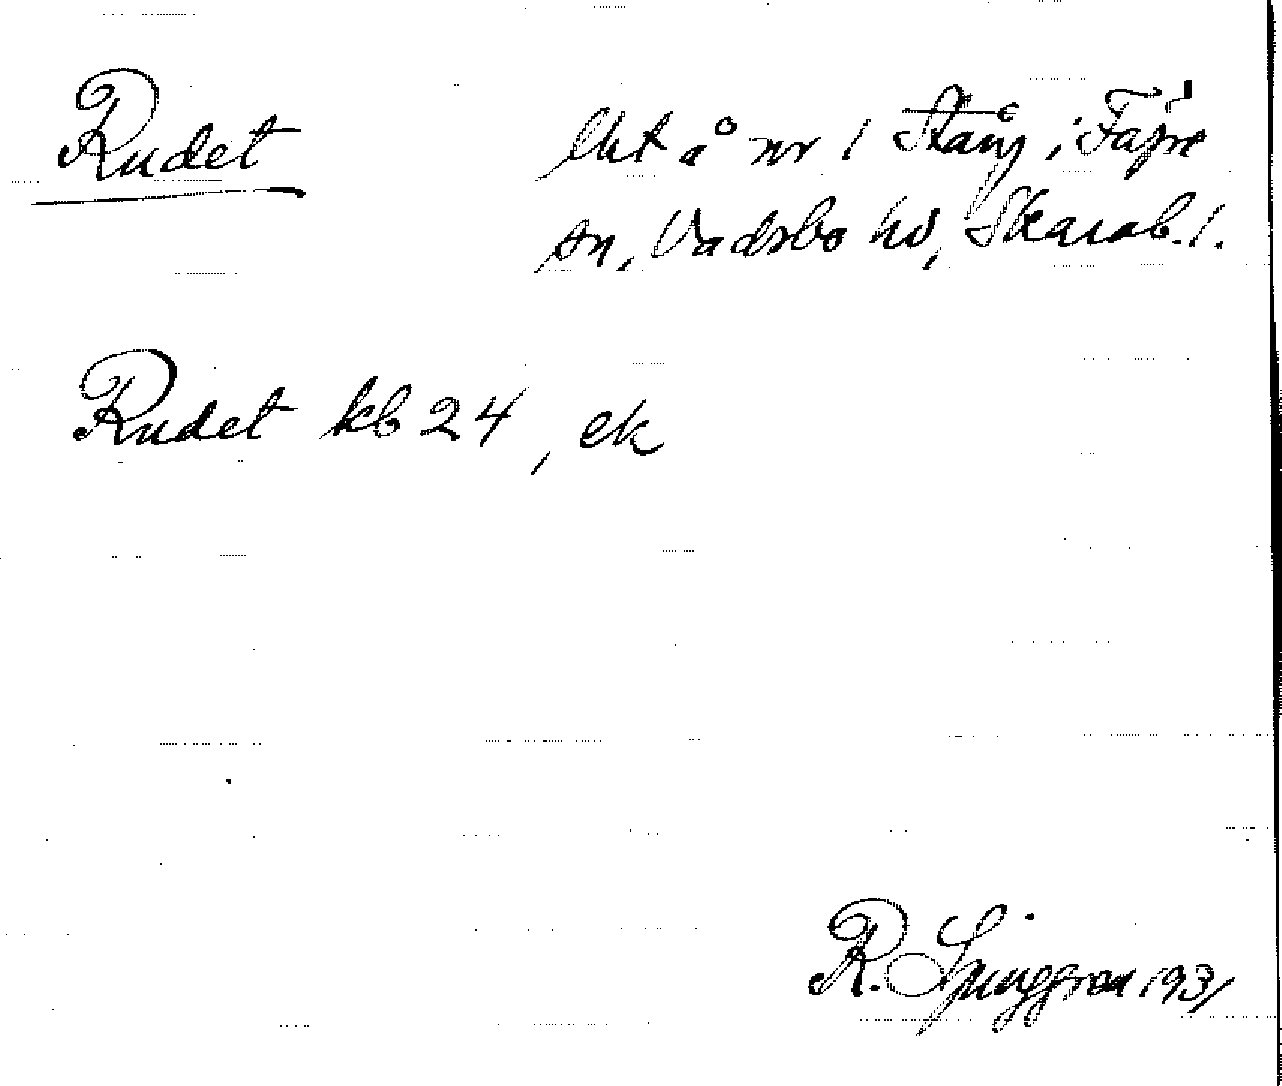 Rudet
Uht å nr 1 Stång i Fägre
sn, Vadsbo hd, Skarab. l.
Rudet kb 24, ek
R. Ljunggren 1931